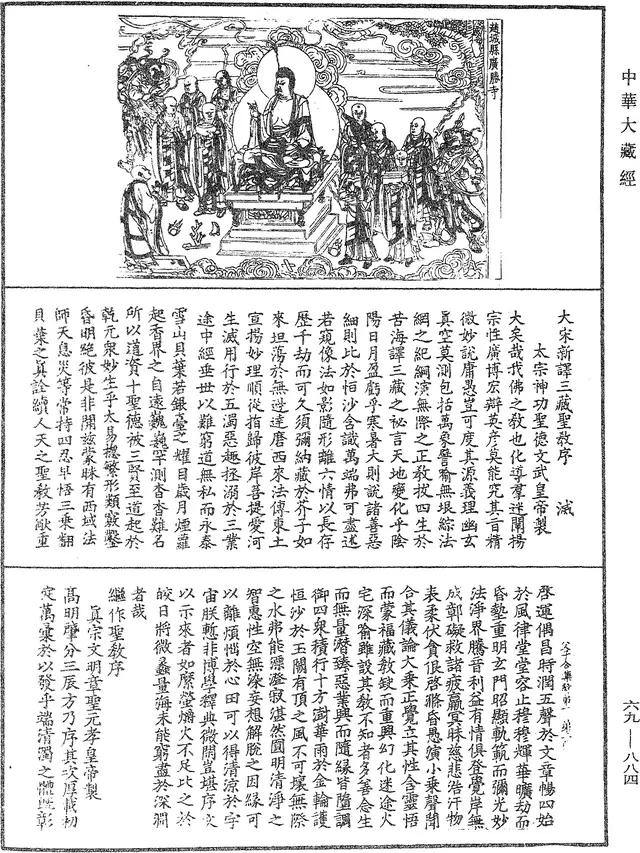 中華大藏經
趙城縣廣勝寺
大宋新譯三藏聖教序 滅
太宗神功聖德文武皇帝製
大矣哉我佛之教也化導羣迷闡揚
宗性廣博宏辯英彥莫能究其旨精
微妙説庸愚豈可度其源義理幽玄
真空莫測包括萬象譬喻無垠綜法
網之紀綱演無際之正教拔四生於
苦海譯三藏之祕言天地變化乎陰
陽日月盈虧乎寒暑大則説諸善惡
細則比於恒沙含識萬端弗可盡述
若窺像法如影隨形離六情以長存
歷千劫而可久須彌納藏於芥子如
來坦蕩於無邊達磨西來法傳東土
宣揚妙理順從指歸彼岸菩提愛河
生滅用行於五濁惡趣拯溺於三業
途中經垂世以難窮道無私而永泰
雪山貝葉若銀臺之耀目歲月煙蘿
起香界之自遠巍巍罕測杳杳難名
所以道資十聖德被三賢至道起於
乹元衆妙生乎太易揔繁形類竅鑿
昏明絶彼是非開兹蒙昧有西域法
師天息災等常持四忍早悟三乘翻
貝葉之真詮續人天之聖教芳猷重
啓運偶昌時潤五聲於文章暢四始
於風律堂堂容止穆穆輝華曠劫而
昏墊重明玄門昭顯軌範而彌光妙
法淨界騰音利益有情俱登覺岸無
成鄣礙救諸疲羸冥昧慈悲浩汗物
表柔伏貪佷啓滌昏愚演小乘聲聞
合其儀論大乘正覺立其性含靈悟
而蒙福藏教缺而重興幻化迷途火
宅深喻雖設其教不知者多善念生
而無量潛臻惡業興而隨緣皆墮調
御四衆積行十方澍華雨於金輪護
恒沙於玉闕有頂之風不可壞無際
之水弗能漂澄寂湛然圓明清淨之
智惠性空無染妄想解脫之因緣可
以離煩惱於心田可以得清涼於宇
宙朕慙非博學釋典微閑豈堪序文
以示來者如縻螢爝火不足比之於
皎日將微蠡量海未能窮盡於深淵
者哉
繼作聖教序
真宗文明章聖元孝皇帝製
髙明肇分三辰方乃序其次厚載初
定萬彙於以發乎端清濁之體旣彰
六九—八八四